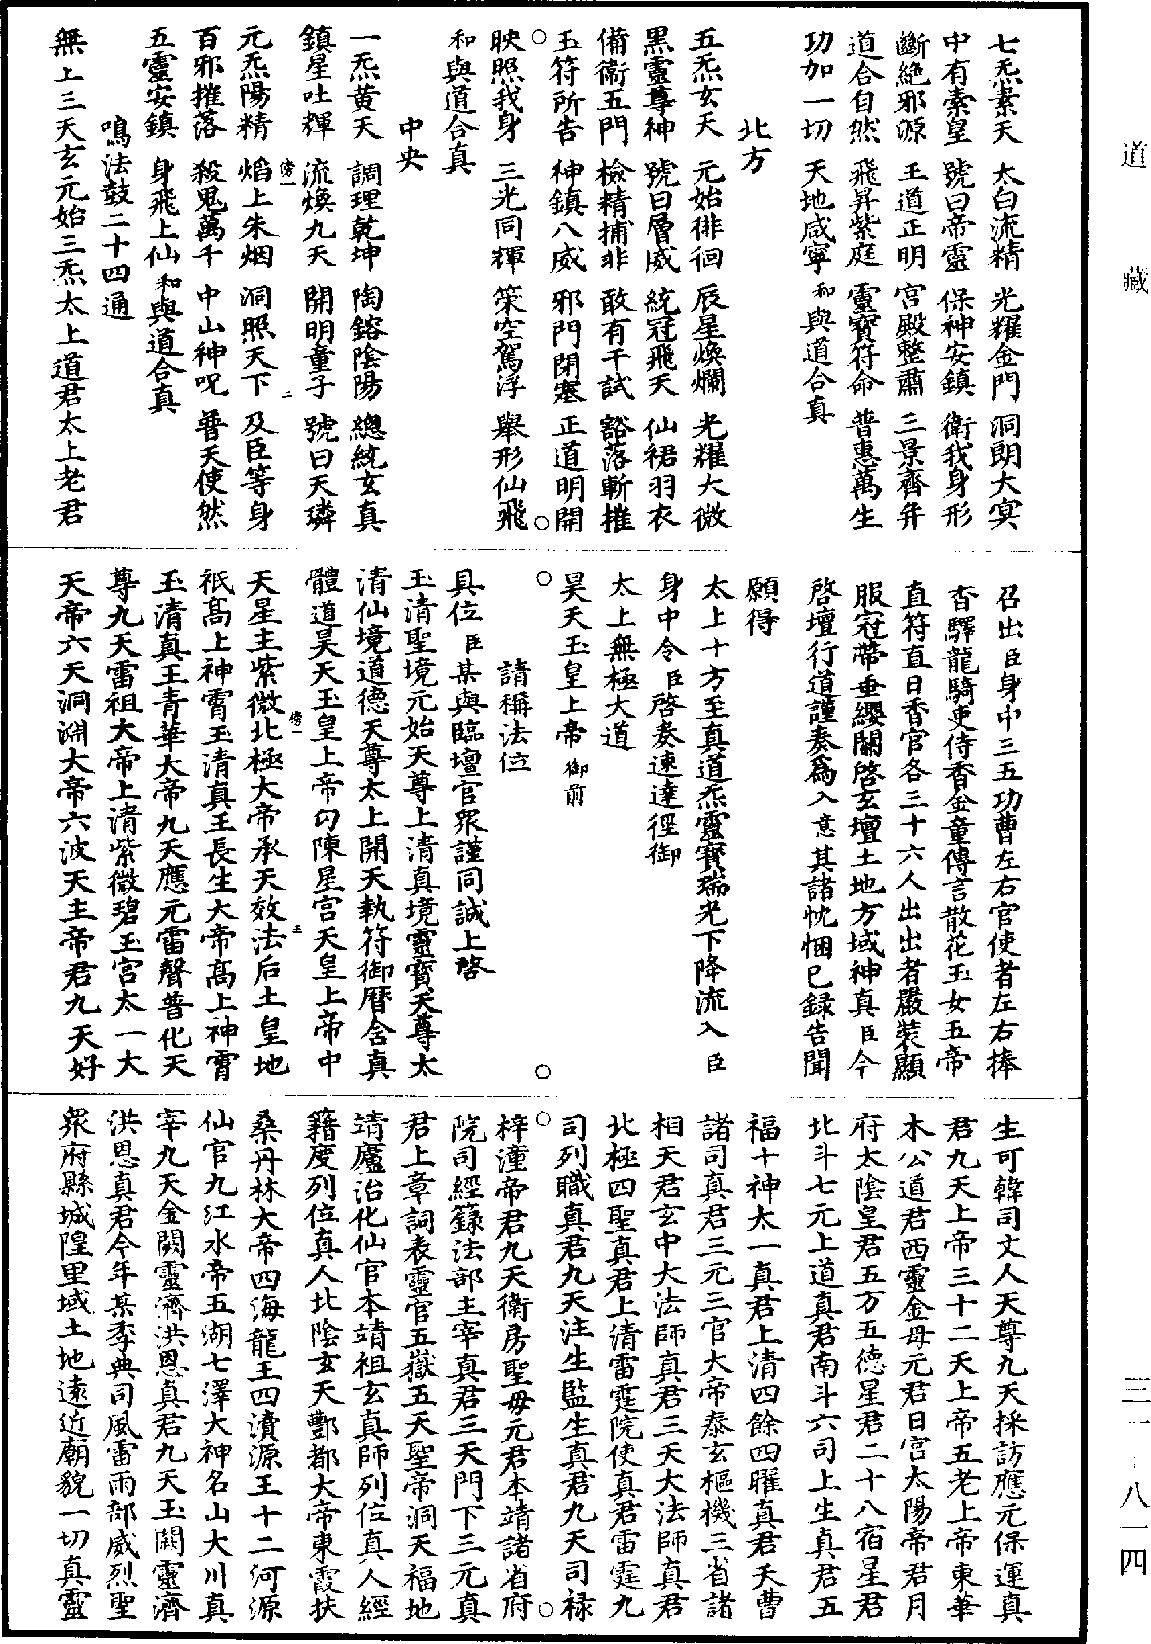 七炁素天　太白流精　光耀金門　洞朗大㝠
中有素皇　號曰帝靈　保神安鎮　衛我身形
斷絶邪源　王道正明　宮殿整肅　三景齊并
道合自然　飛昇紫庭　靈寶符命　普惠萬生
功加一切　天地咸寧　和與道合真
北方
五炁玄天　元始徘徊　辰星煥爛　光耀大微
黑靈尊神　號曰層威　統冠飛天　仙裙羽衣
備衛五門　檢精捕非　敢有干試　豁落斬摧
玉符所告　神鎮八威　邪門閉塞　正道明開
映照我身　三光同輝　策空駕浮　舉形仙飛
和與道合真
中央
一炁黃天　調理乾坤　陶鎔陰陽　總統玄真
鎮星吐輝　流煥九天　開明童子　號曰天璘
元炁陽精　焰上朱烟　洞照天下　及臣等身
百邪摧落　殺鬼萬千　中山神呪　普天使然
五靈安鎮　身飛上仙　和與道合真
鳴法鼓二十四通
無上三天玄元始三炁太上道君太上老君
召出臣身中三五功曹左右官使者左右捧
香驛龍騎吏侍香金童傳言散花玉女五帝
直符直日香官各三十六人出出者嚴裝顯
服冠帶垂纓關啓玄壇土地方域神真臣今
啓壇行道謹奏爲入意其諸忱悃已録告聞
願得
太上十方至真道炁靈寶瑞光下降流入臣
身中令臣啓奏速達徑御
太上無極大道
昊天玉皇上帝御前
請稱法位
具位臣某與臨壇官衆謹同誠上啓
玉清聖境元始天尊上清真境靈寶天尊太
清仙境道德天尊太上開天執符御曆含真
體道昊天玉皇上帝勾陳星宫天皇上帝中
天星主紫微北極大帝承天效法后土皇地
祇高上神霄玉清真王長生大帝高上神霄
玉清真王青華大帝九天應元雷聲普化天
尊九天雷祖大帝上清紫微碧玉宫太一大
天帝六天洞淵大帝六波天主帝君九天好
生可韓司丈人天尊九天採訪應元保運真
君九天上帝三十二天上帝五老上帝東華
木公道君西靈金母元君日宫太陽帝君月
府太陰皇君五方五德星君二十八宿星君
北斗七元上道真君南斗六司上生真君五
福十神太一真君上清四餘四曜真君天曹
諸司真君三元三官大帝泰玄樞機三省諸
相天君玄中大法師真君三天大法師真君
北極四聖真君上清雷霆院使真君雷霆九
司列職真君九天注生監生真君九天司禄
梓潼帝君九天衛房聖母元君本靖諸省府
院司經籙法部主宰真君三天門下三元真
君上章詞表靈官五嶽五天聖帝洞天福地
靖廬治化仙官本靖祖玄真師列位真人經
籍度列位真人北陰玄天酆都大帝東霞扶
桑丹林大帝四海龍王四瀆源王十二河源
仙官九江水帝五湖七澤大神名山大川真
宰九天金闕靈濟洪恩真君九天玉闕靈濟
洪恩真君今年某季典司風雷雨部威烈聖
衆府縣城隍里域土地遠近廟貌一切真靈
道藏
三一‧八一四